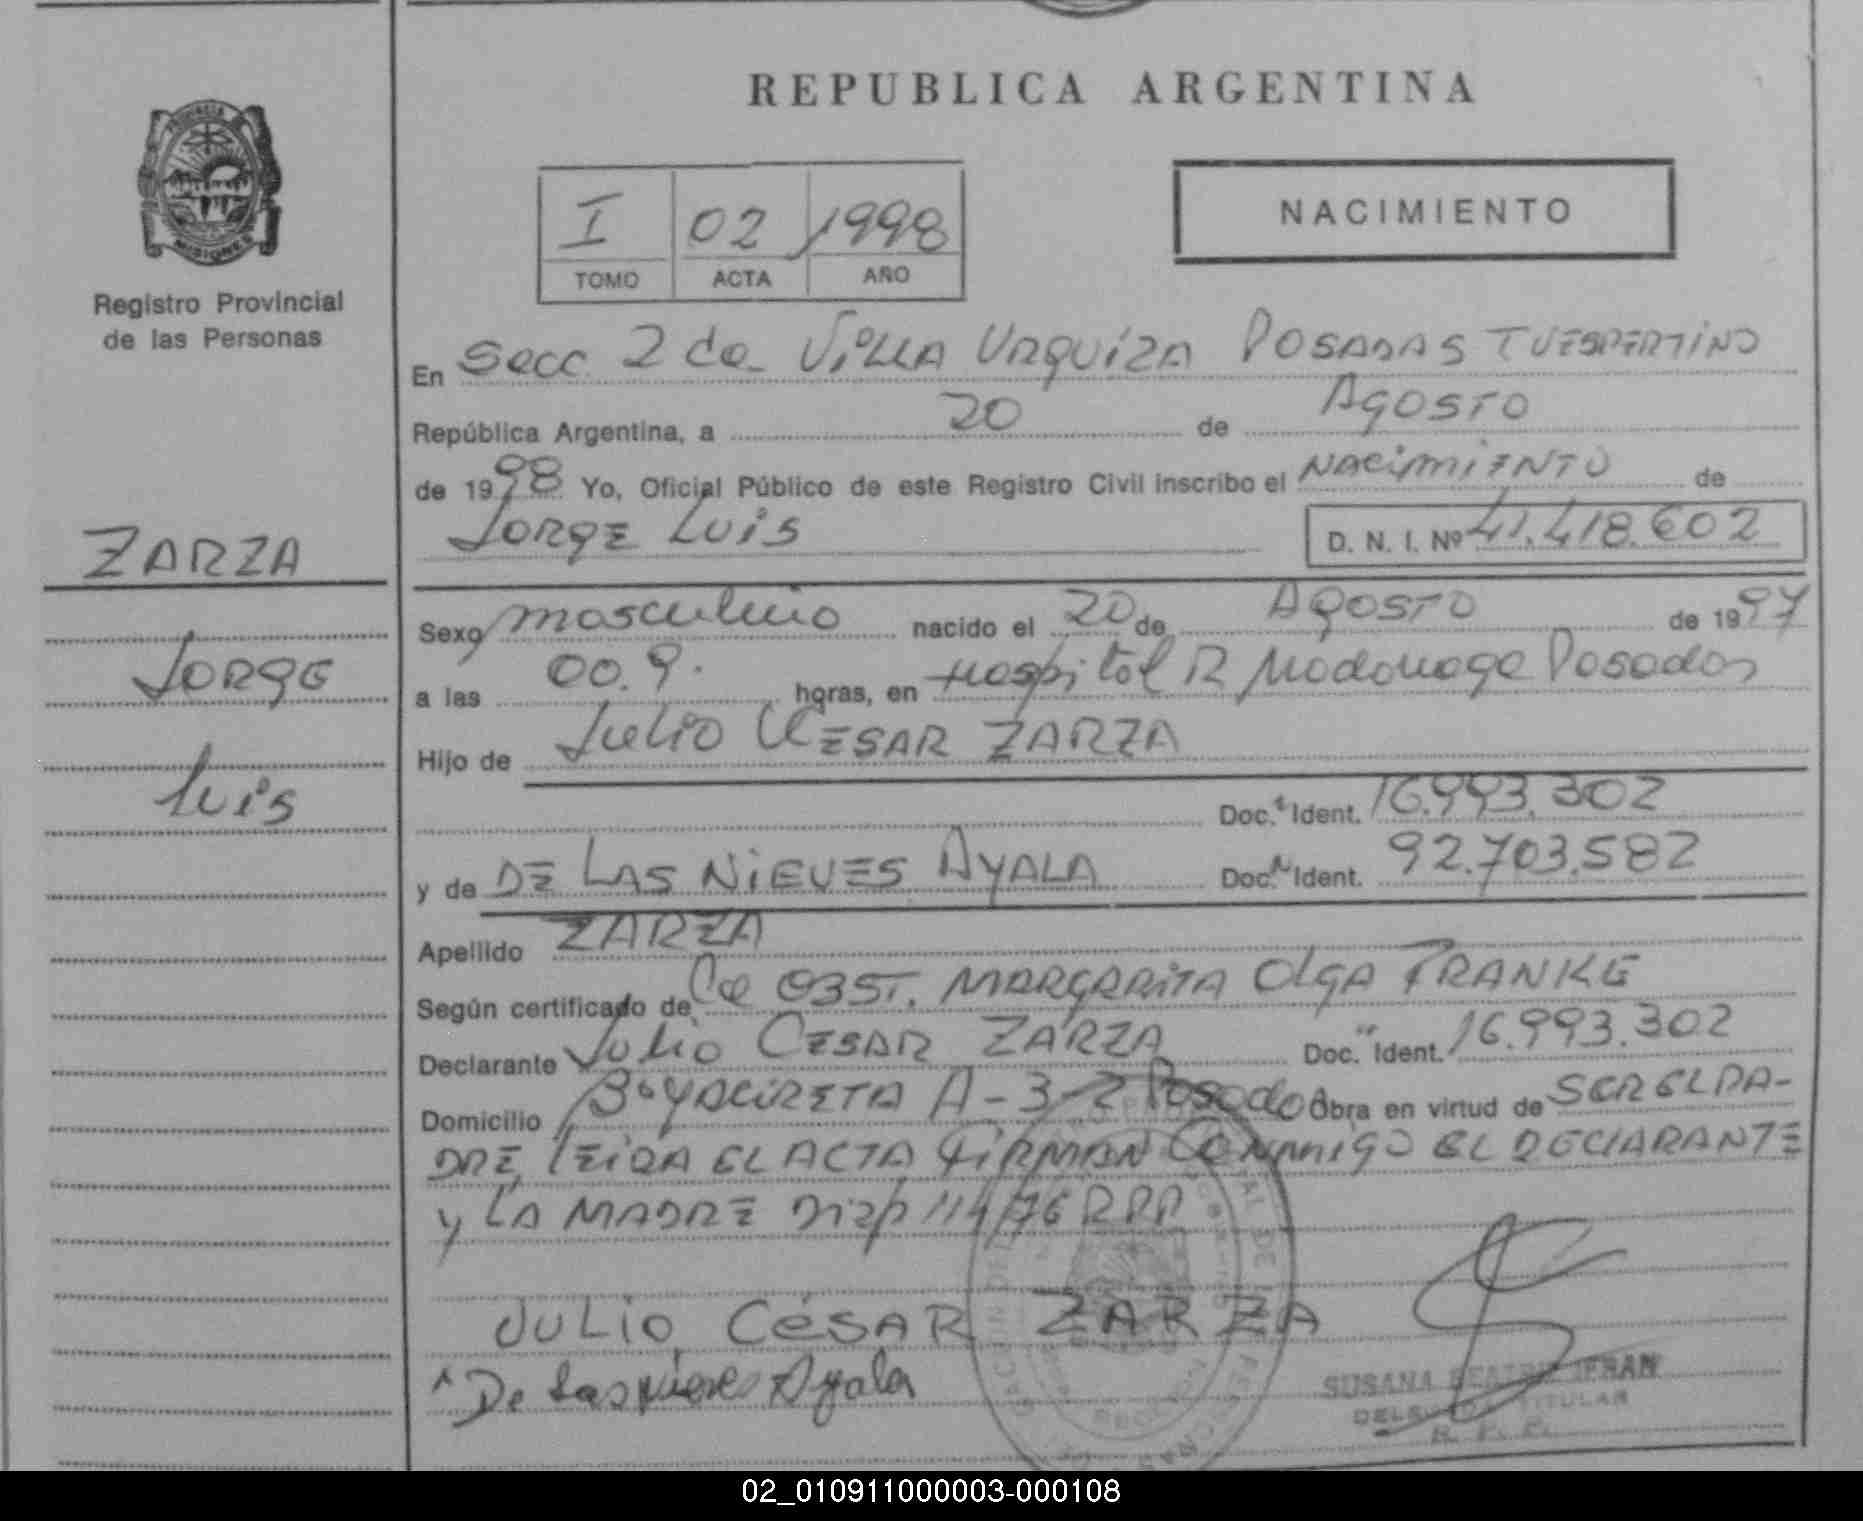 REPUBLICA ARGENTINA
PROVINCIA DE
MISIONES
Registro Provincial
de las Personas
I 02 1998
TOMO ACTA AÑO
NACIMIENTO
En Secc 2da Villa Urquiza Posadas T Vespertino
República Argentina, a 20 de Agosto
de 1998 Yo, Oficial Público de este Registro Civil inscribo el Nacimiento de
Jorge Luis D. N. I. Nº 41.418.602
ZARZA
Jorge
Luis
Sexo masculino nacido el 20 de Agosto de 1997
a las 00.9. horas, en Hospital R Madariaga Posadas
Hijo de Julio Cesar ZARZA
Doc. Ident. 16.993.302
y de DE LAS NIEVES AYALA Doc. Ident. 92.703.582
Apellido ZARZA
Según certificado de La OBST. MARGARITA OLGA FRANKE
Declarante Julio CESAR ZARZA Doc. Ident. 16.993.302
Domicilio Bº YACIRETA A-3-2 Posadas Obra en virtud de SER EL PA-
DRE, leida EL ACTA FIRMAN CONMIGO EL DECLARANTE
y LA MADRE Disp 114/76 RPP
JULIO CéSAR ZARZA
De las nieves Ayala
SUSANA BEATRIZ IFRAN
DELEGADA TITULAR
R. P. P.
02_010911000003-000108